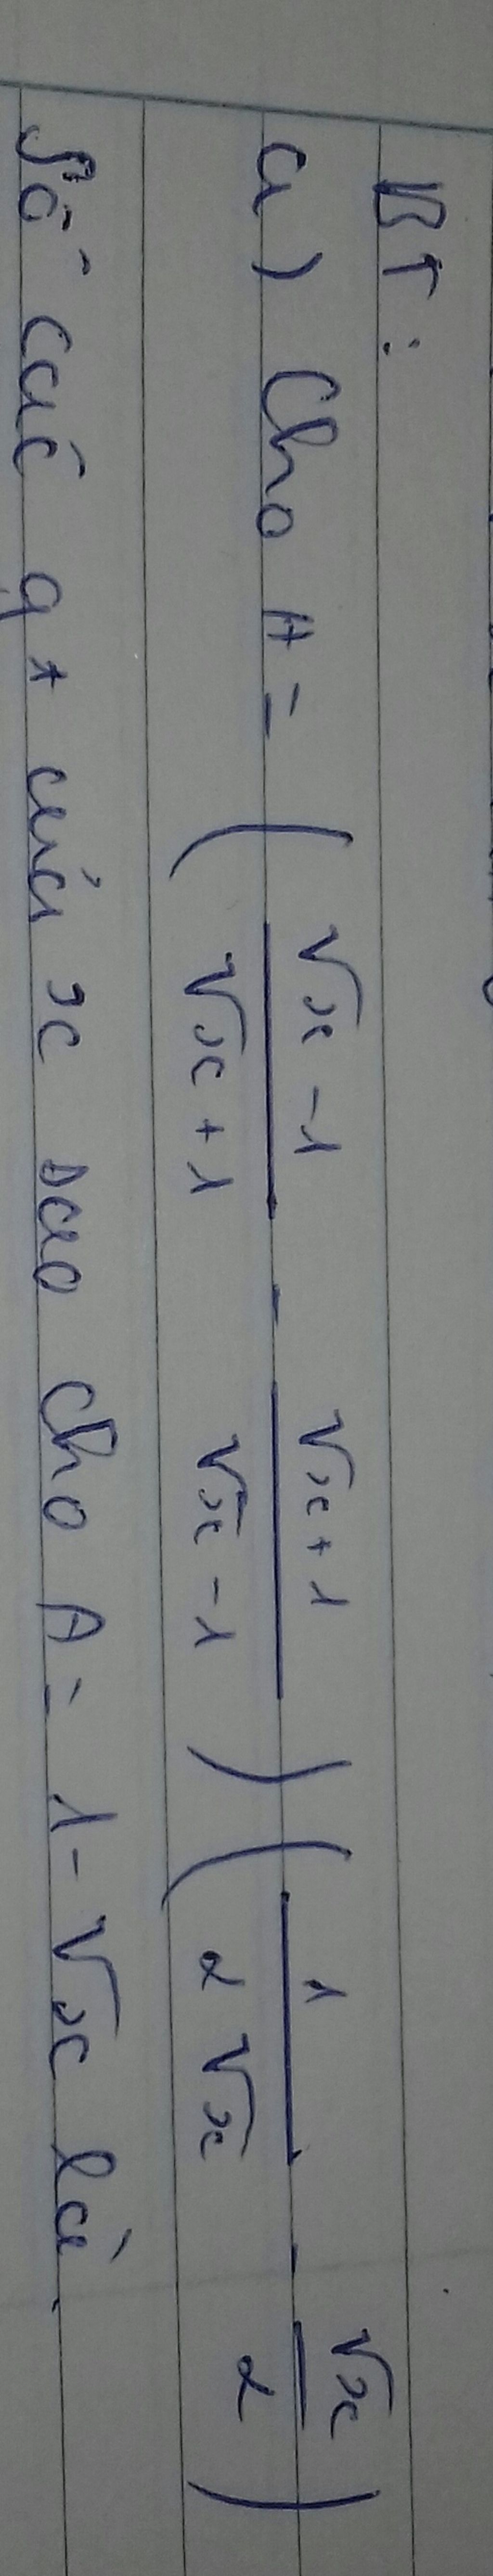 BT :
a) Cho A = ( (√x - 1)/(√x + 1) - (√x + 1)/(√x - 1) ) ( 1/(2√x) - √x/2 )
Số các gt của x sao cho A = 1 - √x là